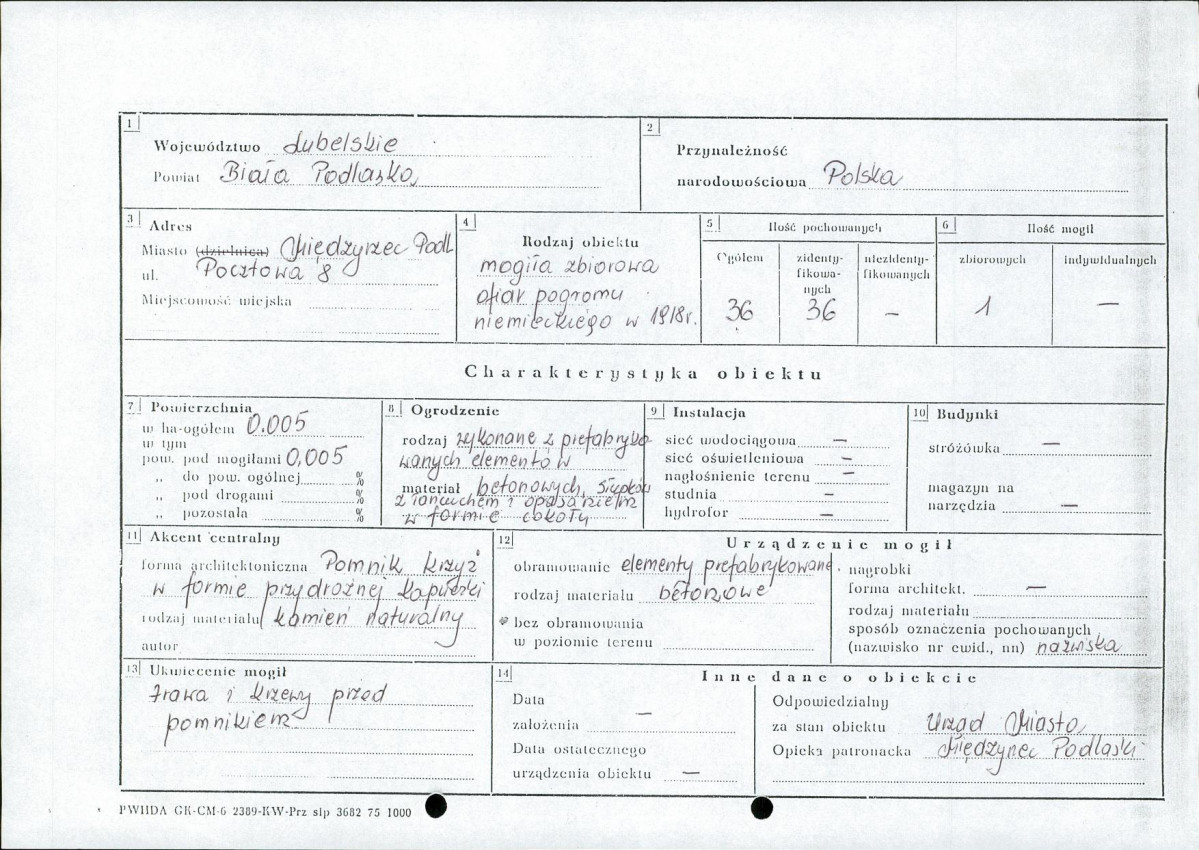 1
Województwo Lubelskie
Powiat Biała Podlaska
2
Przynależność
narodowościowa Polska
3 Adres
Miasto (dzielnica) Międzyrzec Podl
ul. Pocztowa 8
Miejscowość wiejska
4
Rodzaj obiektu
mogiła zbiorowa
ofiar pogromu
niemieckiego w 1918r.
5 Ilość pochowanych
Ogółem
36
zidenty-
fikowa-
nych
36
niezidenty-
fikowanych
–
6 Ilość mogił
zbiorowych
1
indywidualnych
–
Charakterystyka obiektu
7 Powierzchnia
w ha-ogółem 0.005
w tym
pow. pod mogiłami 0,005
„ do pow. ogólnej %
„ pod drogami %
„ pozostała %
8 Ogrodzenie
rodzaj wykonane z prefabryko-
wanych elementów
materiał betonowych, słupków
z łańcuchem i opasaniem
w formie cokołu
9 Instalacja
sieć wodociągowa –
sieć oświetleniowa –
nagłośnienie terenu –
studnia –
hydrofor –
10 Budynki
stróżówka –
magazyn na
narzędzia –
11 Akcent centralny
forma architektoniczna Pomnik krzyż
w formie przydrożnej kapliczki
rodzaj materiału kamień naturalny
autor
12 Urządzenie mogił
obramowanie elementy prefabrykowane.
rodzaj materiału betonowe
bez obramowania
w poziomie terenu
nagrobki
forma architekt. –
rodzaj materiału
sposób oznaczenia pochowanych
(nazwisko nr ewid., nn) nazwiska
13 Ukwiecenie mogił
trawa i krzewy przed
pomnikiem
14 Inne dane o obiekcie
Data
założenia –
Data ostatecznego
urządzenia obiektu –
Odpowiedzialny
za stan obiektu Urząd Miasta
Opieka patronacka Międzyrzec Podlaski
PWHDA GK-CM-6 2389-KW-Prz slp 3682 75 1000